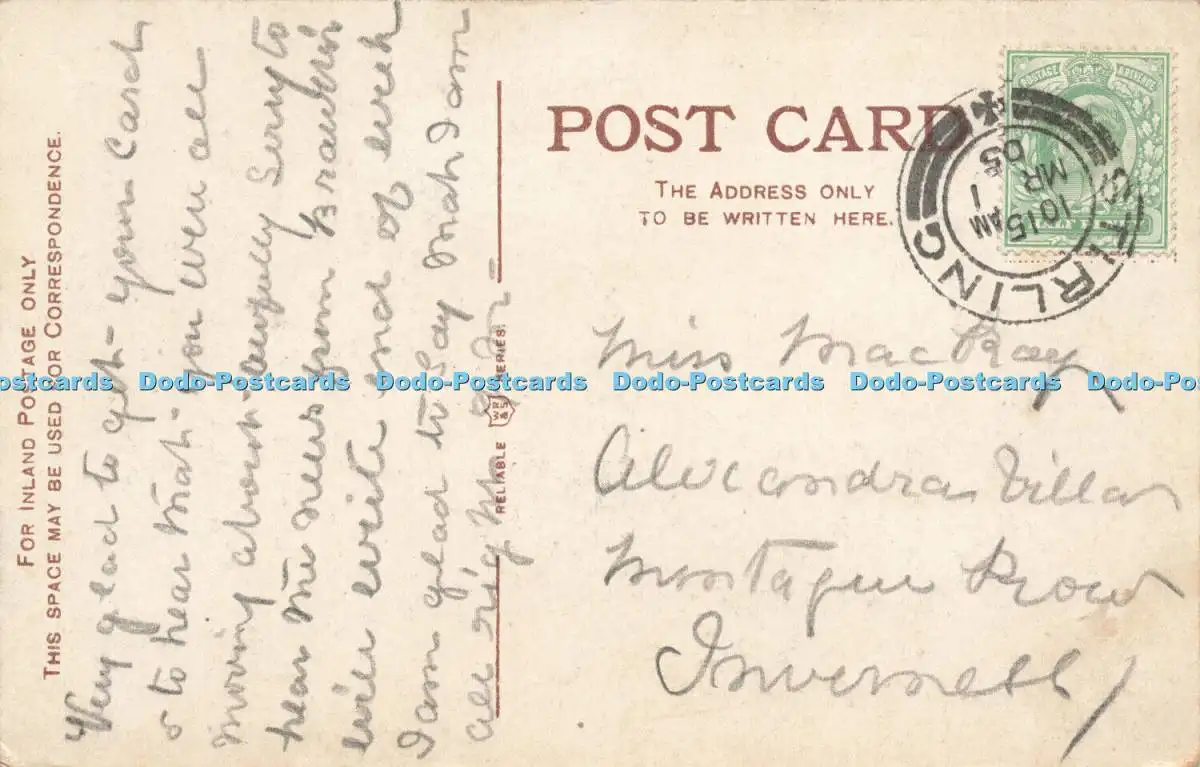 FOR INLAND POSTAGE ONLY
THIS SPACE MAY BE USED FOR CORRESPONDENCE.
Very glad to get your Card
& to hear that you were all
moving about. awfully Sorry to
hear the news from
will write end of week
I am glad to say that I am
all right
RELIABLE WR & S SERIES.
POST CARD
THE ADDRESS ONLY
TO BE WRITTEN HERE.
POSTAGE REVENUE
STIRLING
10 15 AM
MR 1
05
Miss MacKay
Alexandra Villa
Montague Row
Inverness
Dodo-Postcards Dodo-Postcards Dodo-Postcards Dodo-Postcards Dodo-Postcards Dodo-Postcards